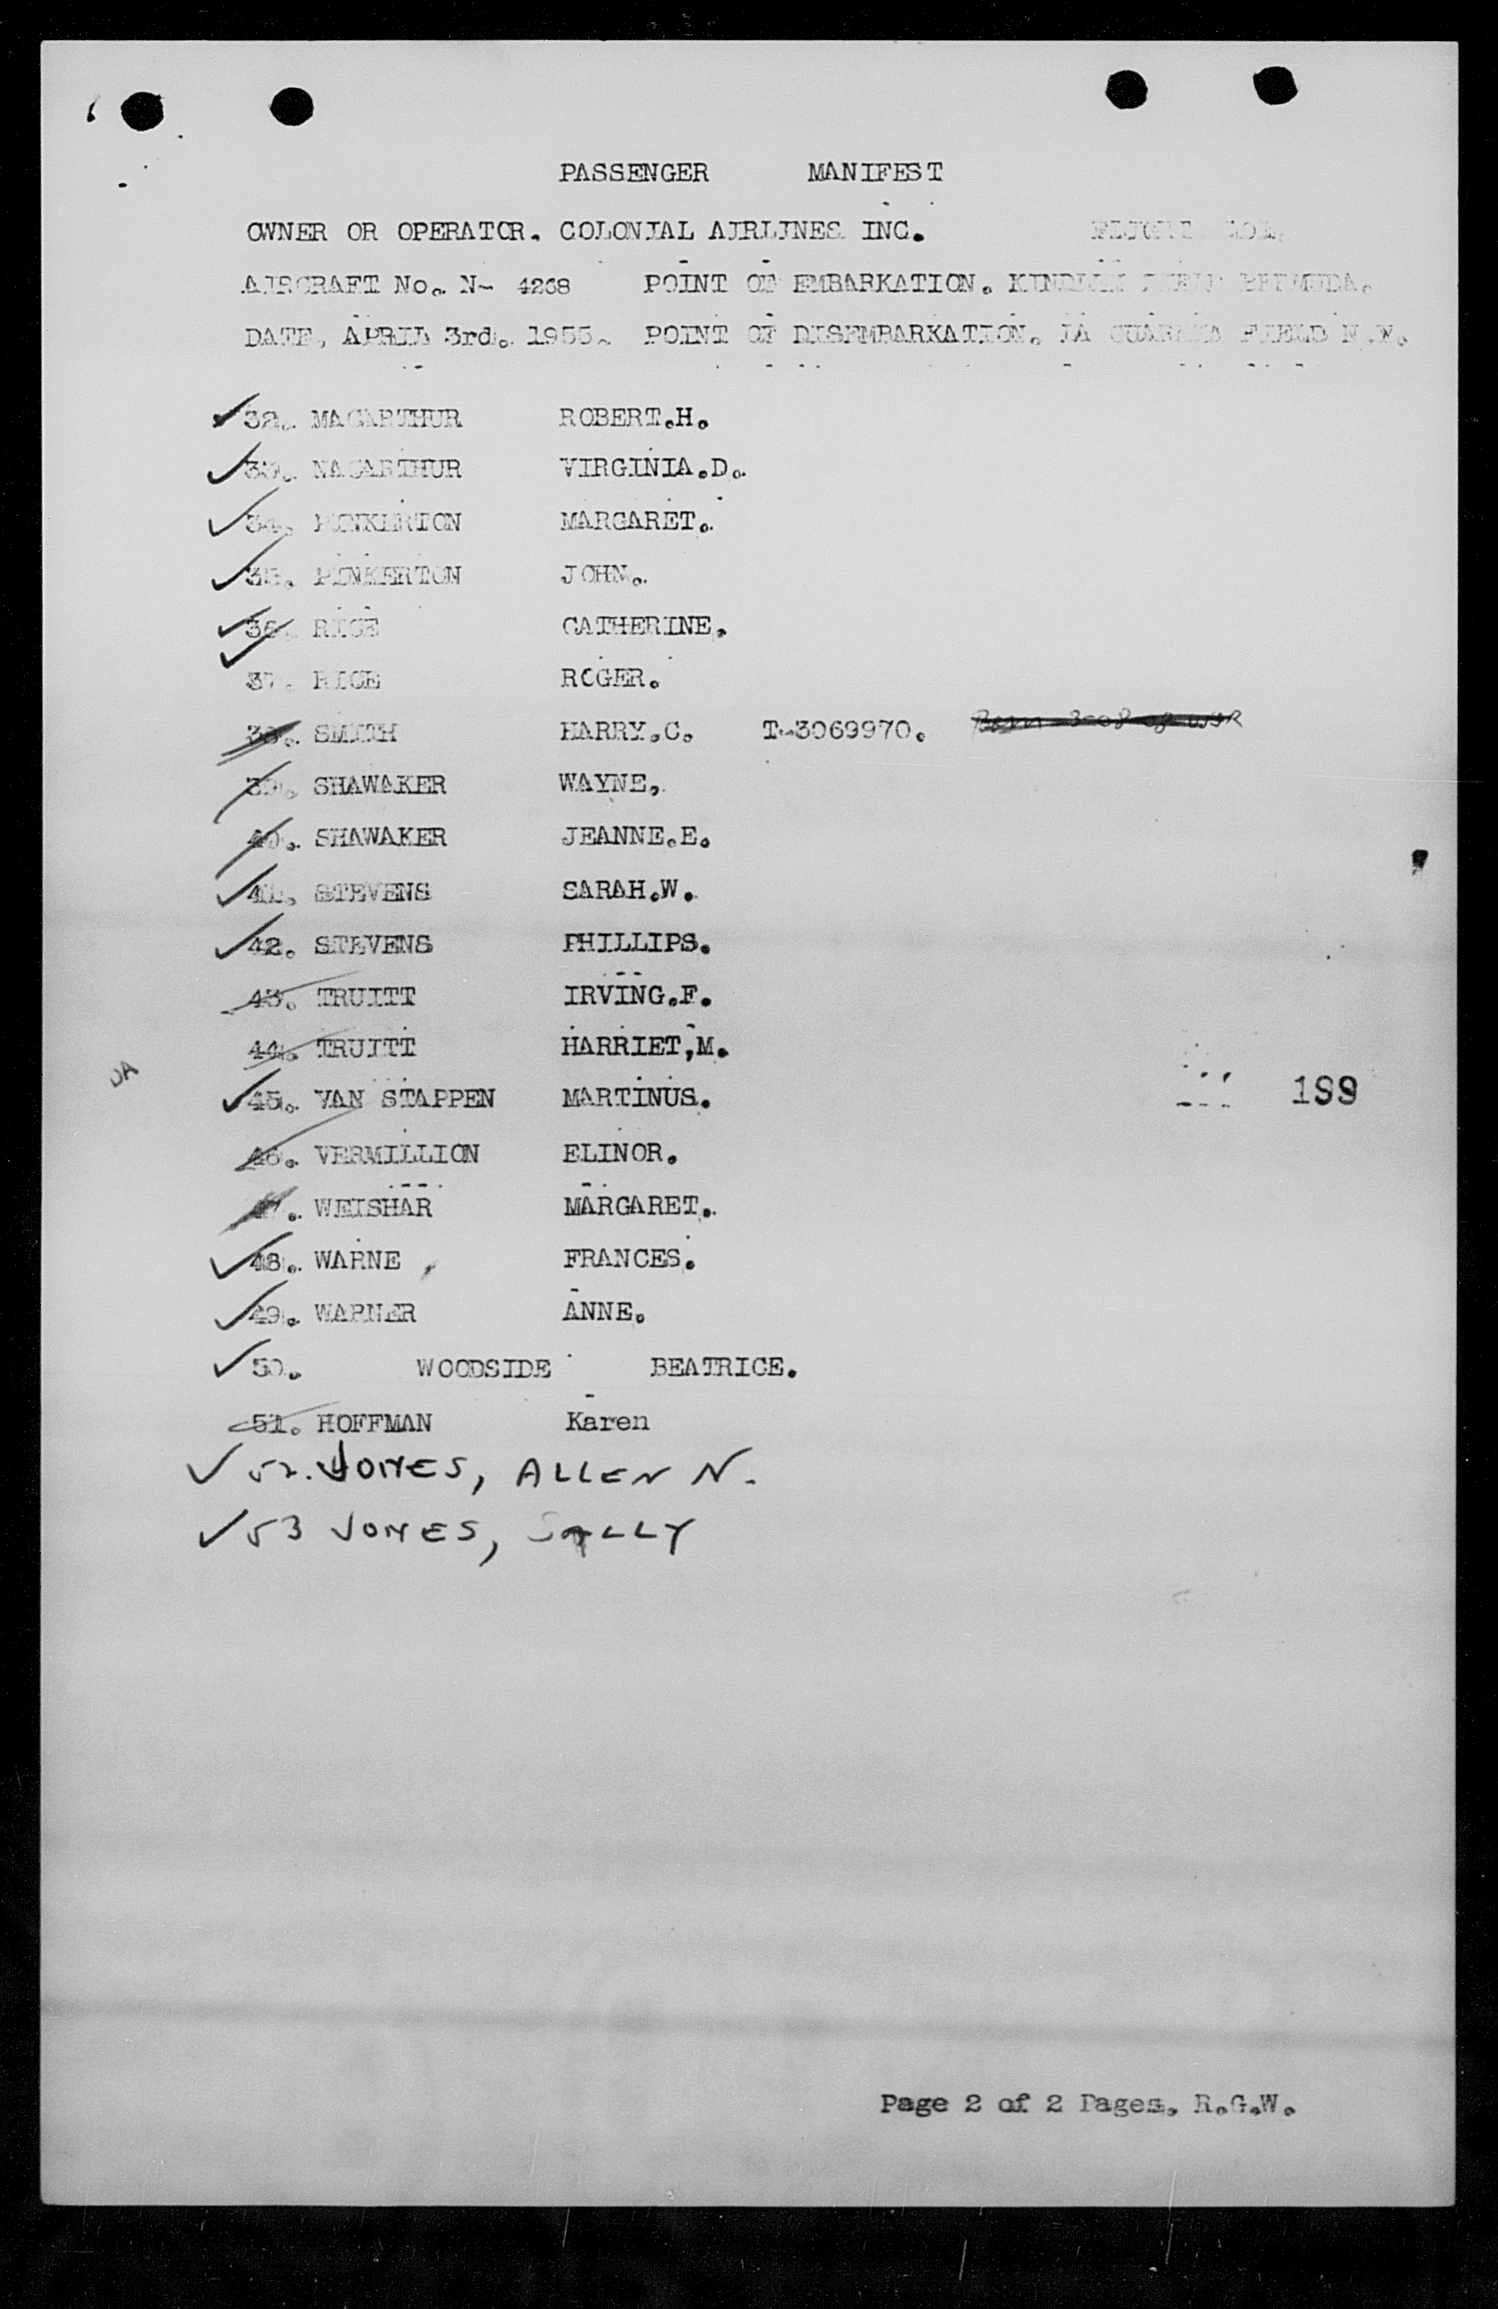 PASSENGER MANIFEST
OWNER OR OPERATOR. COLONIAL AIRLINES INC. FLIGHT
AIRCRAFT No. N- 4268 POINT OF EMBARKATION. KINDLEY FIELD BERMUDA.
DATE, APRIL 3rd. 1955. POINT OF DISEMBARKATION. LA GUARDIA FIELD N.Y.
32. MACARTHUR ROBERT.H.
33. MACARTHUR VIRGINIA.D.
34. PINKERTON MARGARET.
35. PINKERTON JOHN.
36. RICE CATHERINE.
37. RICE ROGER.
38. SMITH HARRY.C. T-3069970.
39. SHAWAKER WAYNE.
40. SHAWAKER JEANNE.E.
41. STEVENS SARAH.W.
42. STEVENS PHILLIPS.
43. TRUITT IRVING.F.
44. TRUITT HARRIET,M.
45. VAN STAPPEN MARTINUS.
199
46. VERMILLION ELINOR.
47. WEISHAR MARGARET.
48. WARNE FRANCES.
49. WARNER ANNE.
50. WOODSIDE BEATRICE.
51. HOFFMAN Karen
52. JONES, ALLEN N.
53 JONES, SALLY
Page 2 of 2 Pages. R.G.W.